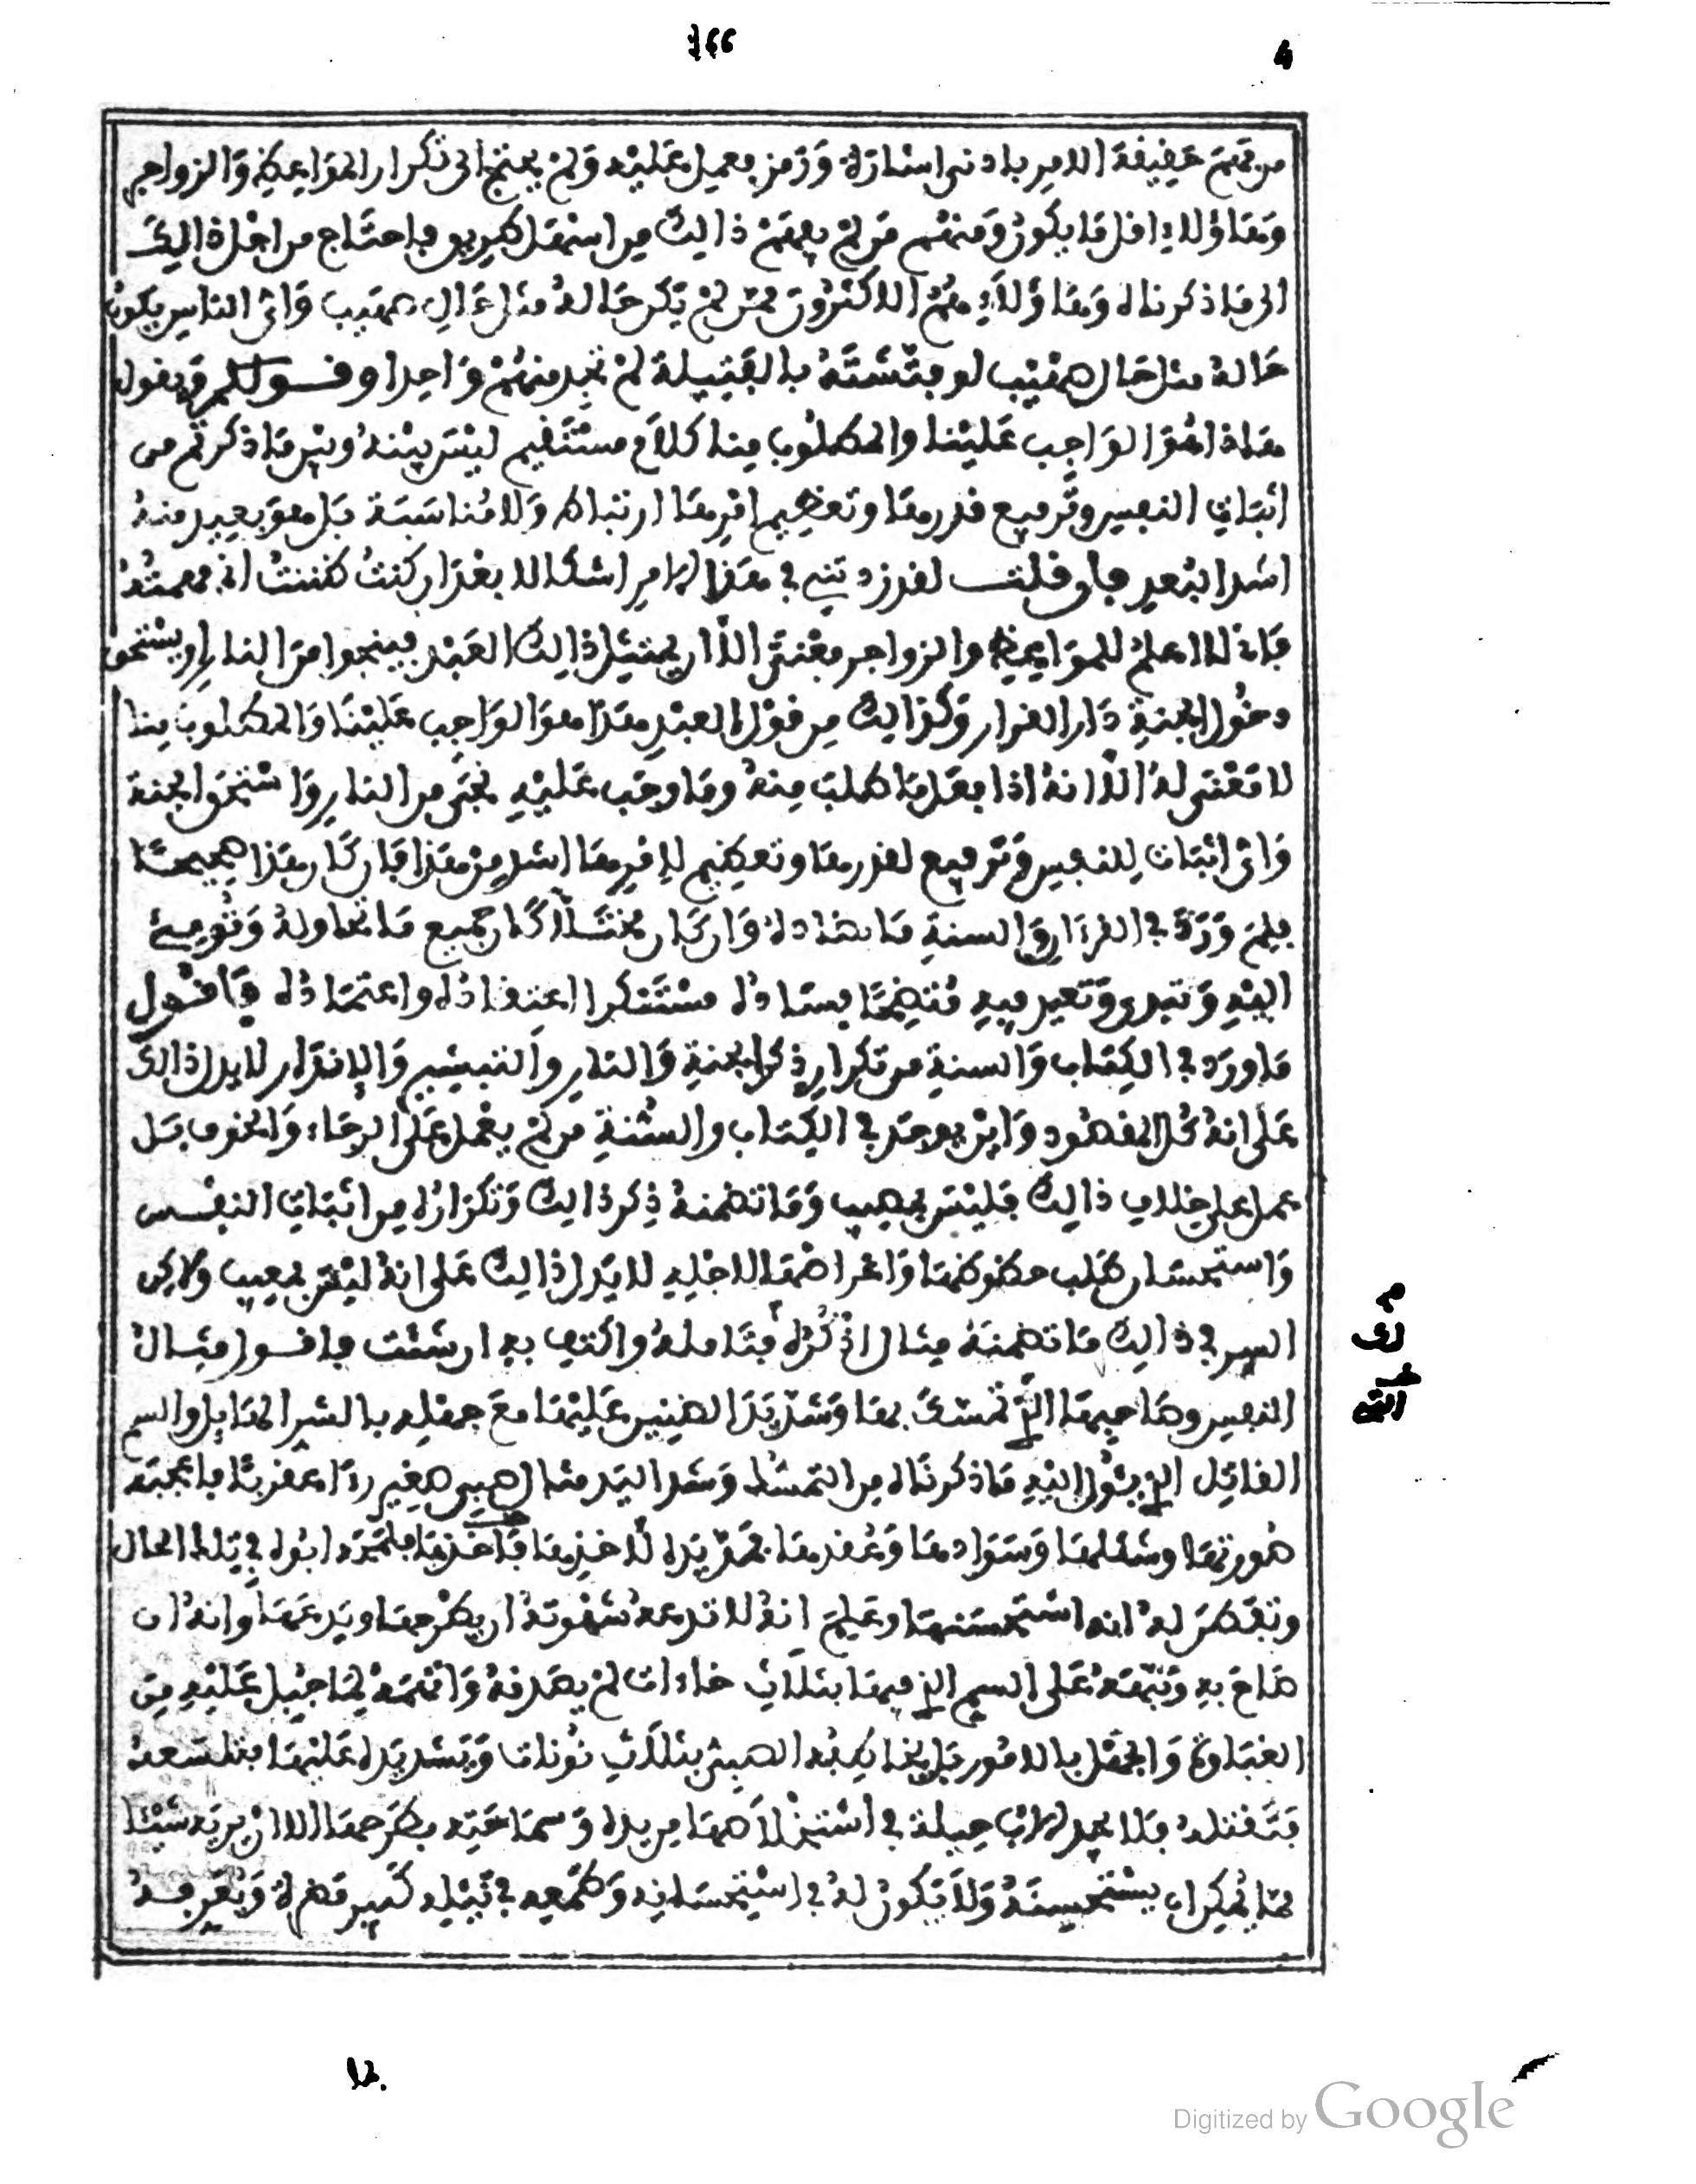 766
4
من فهم حقيقة الامر بادنى اشارة ورمز فعمل عليه ولم يحتج الى تكرار المواعظ والزواجر
وهاؤلاء اقل ما يكون ومنهم من لم يفهم ذالك من اسهل طريق فاحتاج من اجل ذالك
الى ما ذكرناه وهاؤلاء هم الاكثرون ممن لم يكن حاله مثل حال صهيب واي الناس يكون
حاله مثل حال صهيب لو فتشته بالقبيلة لم تجد منهم واحدا وقولكم ويقول
هاذا هو الواجب علينا والمطلوب منا كلام مستقيم ليس بينه وبين ما ذكرتم من
اثبات النفس وترفيع قدرها وتعظيم امرها ارتباط ولا مناسبة بل هو بعيد منه
اشد البعد فان قلت لقد زدتني في هذا الامر اشكالا بعد ان كنت ظننت اني فهمته
فاني لا اعلم للمواعظ والزواجر معنى الا ان يمتثل ذالك العبد فينجوا من النار او يستحق
دخول الجنة دار القرار وكذالك من قول العبد هذا هو الواجب علينا والمطلوب منا
لا معنى له الا انه اذا فعل ما طلب منه وما وجب عليه نجى من النار واستحق الجنة
واي اثبات للنفس وترفيع لقدرها وتعظيم لامرها اشد من هذا فان كان هذا صحيحا
فلم ورد في القرءان والسنة ما يضاده وان كان مختلا كان جميع ما تحاوله وتومئ
اليه وتبدي وتعيد فيه متضحا فساده مستنكرا اعتقاده واعتماده فاقول
ما ورد في الكتاب والسنة من تكرار ذكر الجنة والنار والتبشير والانذار لا يدل ذالك
على انه كل المقصود واين يوجد في الكتاب والسنة من لم يعمل على الرجاء والخوف بل
عمل على خلاف ذالك فليس بمصيب وما تضمنه ذكر ذالك وتكراره من اثبات النفس
واستحسان طلب حظوظها واغراضها لاجله لا يدل ذالك على انه ليس بمعيب ولاكن
السر في ذالك ما تضمنه مثال اذكره فتامله واكتف به ان شئت فاقول مثال
النفس وصاحبها الذي تمسك بها وشد يد الضنين عليها مع جهله بالشر الهايل والسم
القاتل الذي يئول اليه ما ذكرناه من التمسك وشد اليد مثال صبي صغير رءا عقربا فاعجبته
صورتها وشكلها وسوادها وعقدها فمد يده لاخذها فاخذها فلمحه ابوه في تلك الحال
وتفطن له انه استحسنها وعلم انه لا تدعه شهوته ان يطرحها ويدعها وانه ان
صاح به ونبهه على السم الذي فيها بثلاث خاءات لم يصدقه واتهمه لما جبل عليه من
الغباوة والجهل بالامور بل يخاطبه الصبي بثلاث نونات ويشد يده عليها فتلسعه
فتقتله فلا يجد الاب حيلة في استخلاصها من يده وسماحته بطرحها الا ان يريه شيئا
مما يمكن ان يستحسنه ولا يكون له في استحسانه وطمعه في نيله كبير مضرة ويعرفه